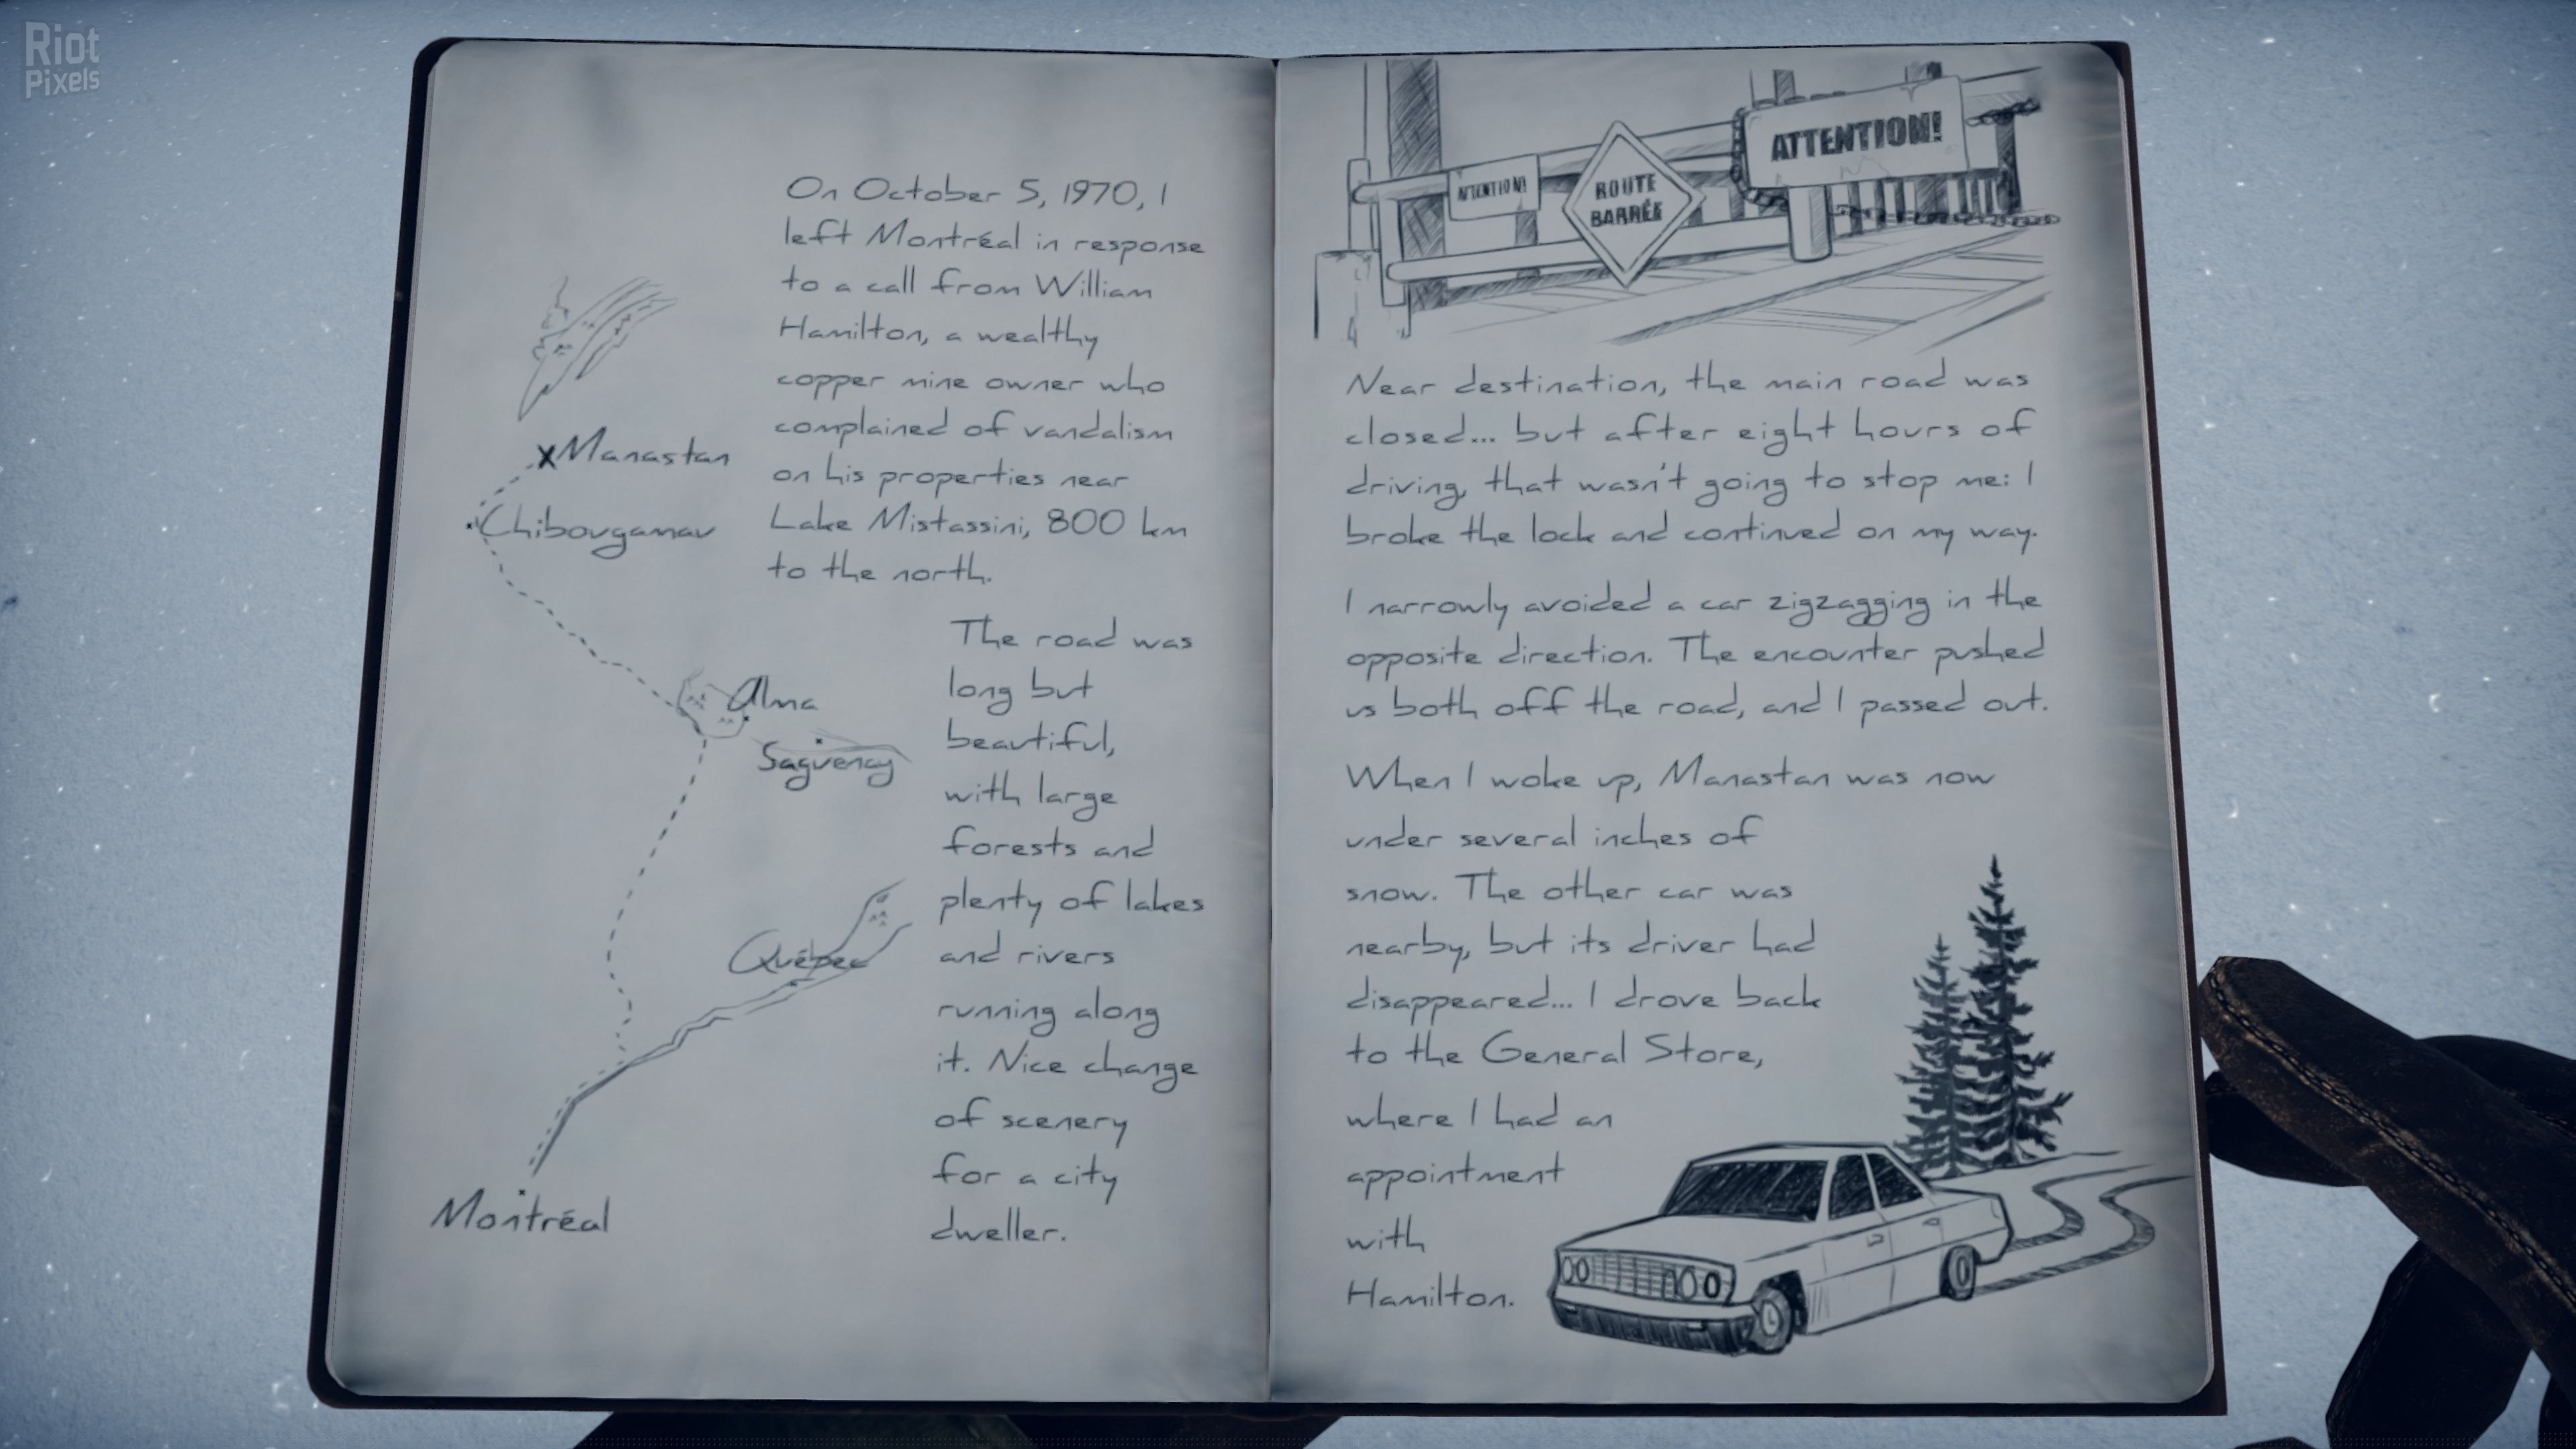 Riot
Pixels
On October 5, 1970, I
left Montréal in response
to a call from William
Hamilton, a wealthy
copper mine owner who
complained of vandalism
on his properties near
Lake Mistassini, 800 km
to the north.
The road was
long but
beautiful,
with large
forests and
plenty of lakes
and rivers
running along
it. Nice change
of scenery
for a city
dweller.
x Manastan
Chibougamau
Alma
Saguenay
Québec
Montréal
ATTENTION!
ROUTE
BARRÉE
ATTENTION!
Near destination, the main road was
closed... but after eight hours of
driving, that wasn't going to stop me: I
broke the lock and continued on my way.
I narrowly avoided a car zigzagging in the
opposite direction. The encounter pushed
us both off the road, and I passed out.
When I woke up, Manastan was now
under several inches of
snow. The other car was
nearby, but its driver had
disappeared... I drove back
to the General Store,
where I had an
appointment
with
Hamilton.